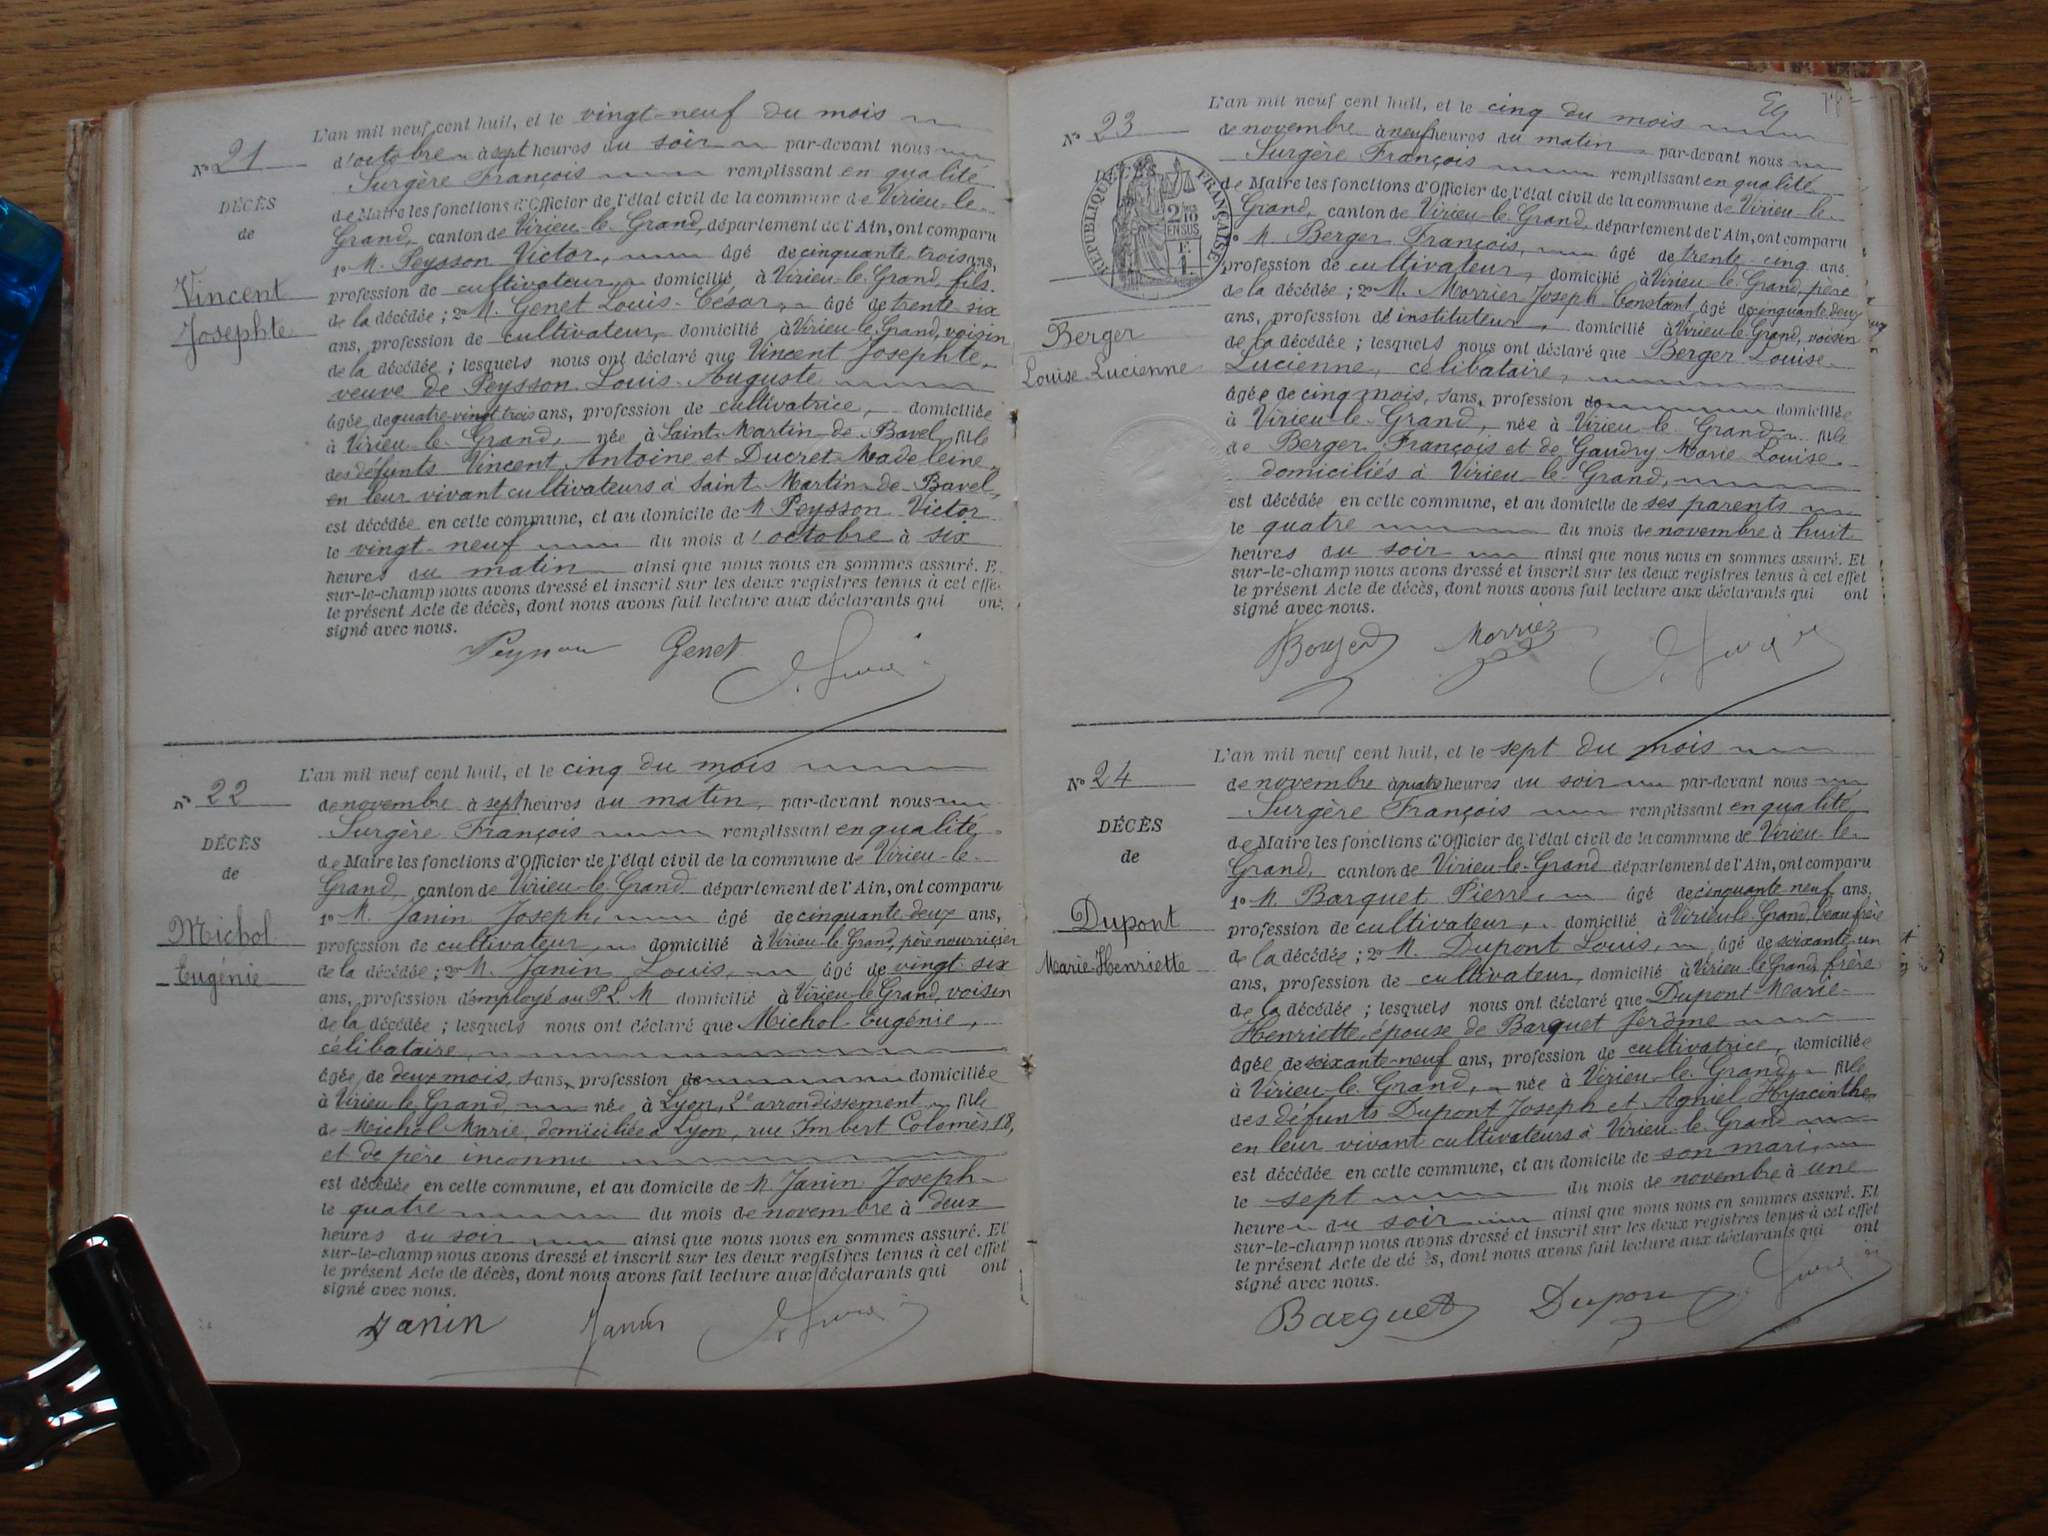 L'an mil neuf cent huit, et le vingt-neuf du mois
N° 21
d'octobre à sept heures du soir par-devant nous
Surgère François remplissant en qualité
DÉCÈS
de Maire les fonctions d'Officier de l'état civil de la commune de Virieu-le-
de
Grand, canton de Virieu-le-Grand, département de l'Ain, ont comparu
1° M. Peysson Victor, âgé de cinquante-trois ans,
Vincent
profession de cultivateur, domicilié à Virieu-le-Grand, fils
Josephte
de la décédée ; 2° M. Genet Louis-César, âgé de trente-six
ans, profession de cultivateur, domicilié à Virieu-le-Grand, voisin
de la décédée ; lesquels nous ont déclaré que Vincent Josephte,
veuve de Peysson Louis-Auguste
âgée de quatre-vingt-trois ans, profession de cultivatrice, domiciliée
à Virieu-le-Grand, née à Saint-Martin-de-Bavel fille
des défunts Vincent Antoine et Ducret Madeleine,
en leur vivant cultivateurs à Saint-Martin-de-Bavel,
est décédée en cette commune, et au domicile de M Peysson Victor
le vingt-neuf du mois d'octobre à six
heures du matin ainsi que nous nous en sommes assuré. E
sur-le-champ nous avons dressé et inscrit sur les deux registres tenus à cet effe
le présent Acte de décès, dont nous avons fait lecture aux déclarants qui ont
signé avec nous.
Peysson Genet
L'an mil neuf cent huit, et le cinq du mois
N° 22
de novembre à sept heures du matin, par-devant nous
Surgère François remplissant en qualité
DÉCÈS
de Maire les fonctions d'Officier de l'état civil de la commune de Virieu-le-
de
Grand, canton de Virieu-le-Grand département de l'Ain, ont comparu
1° M. Janin Joseph, âgé de cinquante-deux ans,
Michol
profession de cultivateur domicilié à Virieu-le-Grand, père nourricier
Eugénie
de la décédée ; 2° M. Janin Louis, âgé de vingt-six
ans, profession d'employé au P L M domicilié à Virieu-le-Grand, voisin
de la décédée ; lesquels nous ont déclaré que Michol Eugénie,
célibataire,
âgée de deux mois, sans profession de domiciliée
à Virieu-le-Grand née à Lyon, 2e arrondissement fille
de Michol Marie, domiciliée à Lyon, rue Imbert Colomès 18,
et de père inconnu
est décédée en cette commune, et au domicile de M Janin Joseph
le quatre du mois de novembre à deux
heures du soir ainsi que nous nous en sommes assuré. Et
sur-le-champ nous avons dressé et inscrit sur les deux registres tenus à cet effet
le présent Acte de décès, dont nous avons fait lecture aux déclarants qui ont
signé avec nous.
Janin Janin
L'an mil neuf cent huit, et le cinq du mois
N° 23
de novembre à neuf heures du matin par-devant nous
Surgère François remplissant en qualité
RÉPUBLIQUE FRANÇAISE
2 /10 EN SUS
de Maire les fonctions d'Officier de l'état civil de la commune de Virieu-le-
Grand, canton de Virieu-le-Grand, département de l'Ain, ont comparu
1° M. Berger François, âgé de trente-cinq ans,
profession de cultivateur, domicilié à Virieu-le-Grand, père
de la décédée ; 2° M. Morrier Joseph Constant, âgé de cinquante-deux
ans, profession d'instituteur, domicilié à Virieu-le-Grand, voisin
Berger
de la décédée ; lesquels nous ont déclaré que Berger Louise-
Louise-Lucienne
Lucienne, célibataire,
âgée de cinq mois, sans profession de domiciliée
à Virieu-le-Grand, née à Virieu-le-Grand fille
de Berger François et de Gaudry Marie-Louise
domiciliés à Virieu-le-Grand,
est décédée en cette commune, et au domicile de ses parents
le quatre du mois de novembre à huit
heures du soir ainsi que nous nous en sommes assuré. Et
sur-le-champ nous avons dressé et inscrit sur les deux registres tenus à cet effet
le présent Acte de décès, dont nous avons fait lecture aux déclarants qui ont
signé avec nous.
Morrier
L'an mil neuf cent huit, et le sept du mois
N° 24
de novembre à quatre heures du soir par-devant nous
Surgère François remplissant en qualité
DÉCÈS
de Maire les fonctions d'Officier de l'état civil de la commune de Virieu-le-
de
Grand, canton de Virieu-le-Grand département de l'Ain, ont comparu
1° M. Barquet Pierre, âgé de cinquante-neuf ans,
Dupont
profession de cultivateur, domicilié à Virieu-le-Grand, beau-frère
de la décédée ; 2° M. Dupont Louis, âgé de soixante-un
Marie-Henriette
ans, profession de cultivateur, domicilié à Virieu-le-Grand frère
de la décédée ; lesquels nous ont déclaré que Dupont Marie-
Henriette, épouse de Barquet Jérôme
âgée de soixante-neuf ans, profession de cultivatrice, domiciliée
à Virieu-le-Grand, née à Virieu-le-Grand, fille
des défunts Dupont Joseph et Agniel Hyacinthe,
en leur vivant cultivateurs à Virieu-le-Grand
est décédée en cette commune, et au domicile de son mari,
le sept du mois de novembre à une
heure du soir ainsi que nous nous en sommes assuré. Et
sur-le-champ nous avons dressé et inscrit sur les deux registres tenus à cet effet
le présent Acte de décès, dont nous avons fait lecture aux déclarants qui ont
signé avec nous.
Barquet Dupont